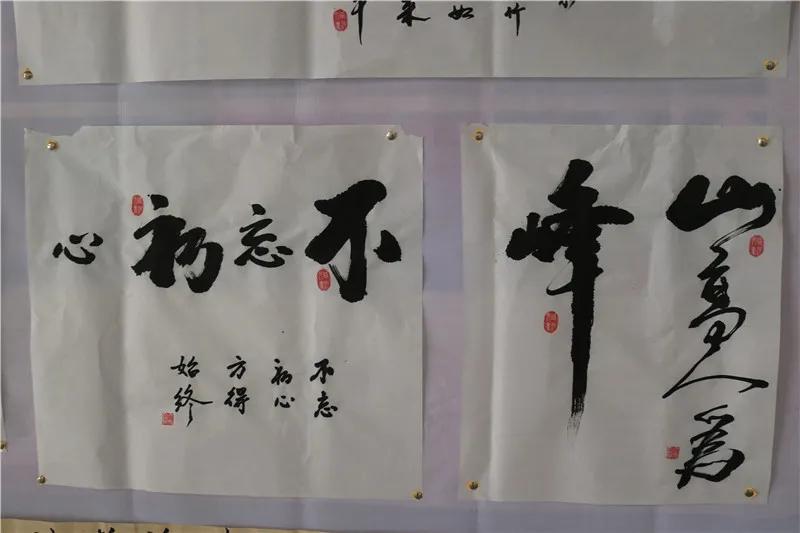 竹
如
不忘初心
不忘
初心
方得
始终
山高人為
峰